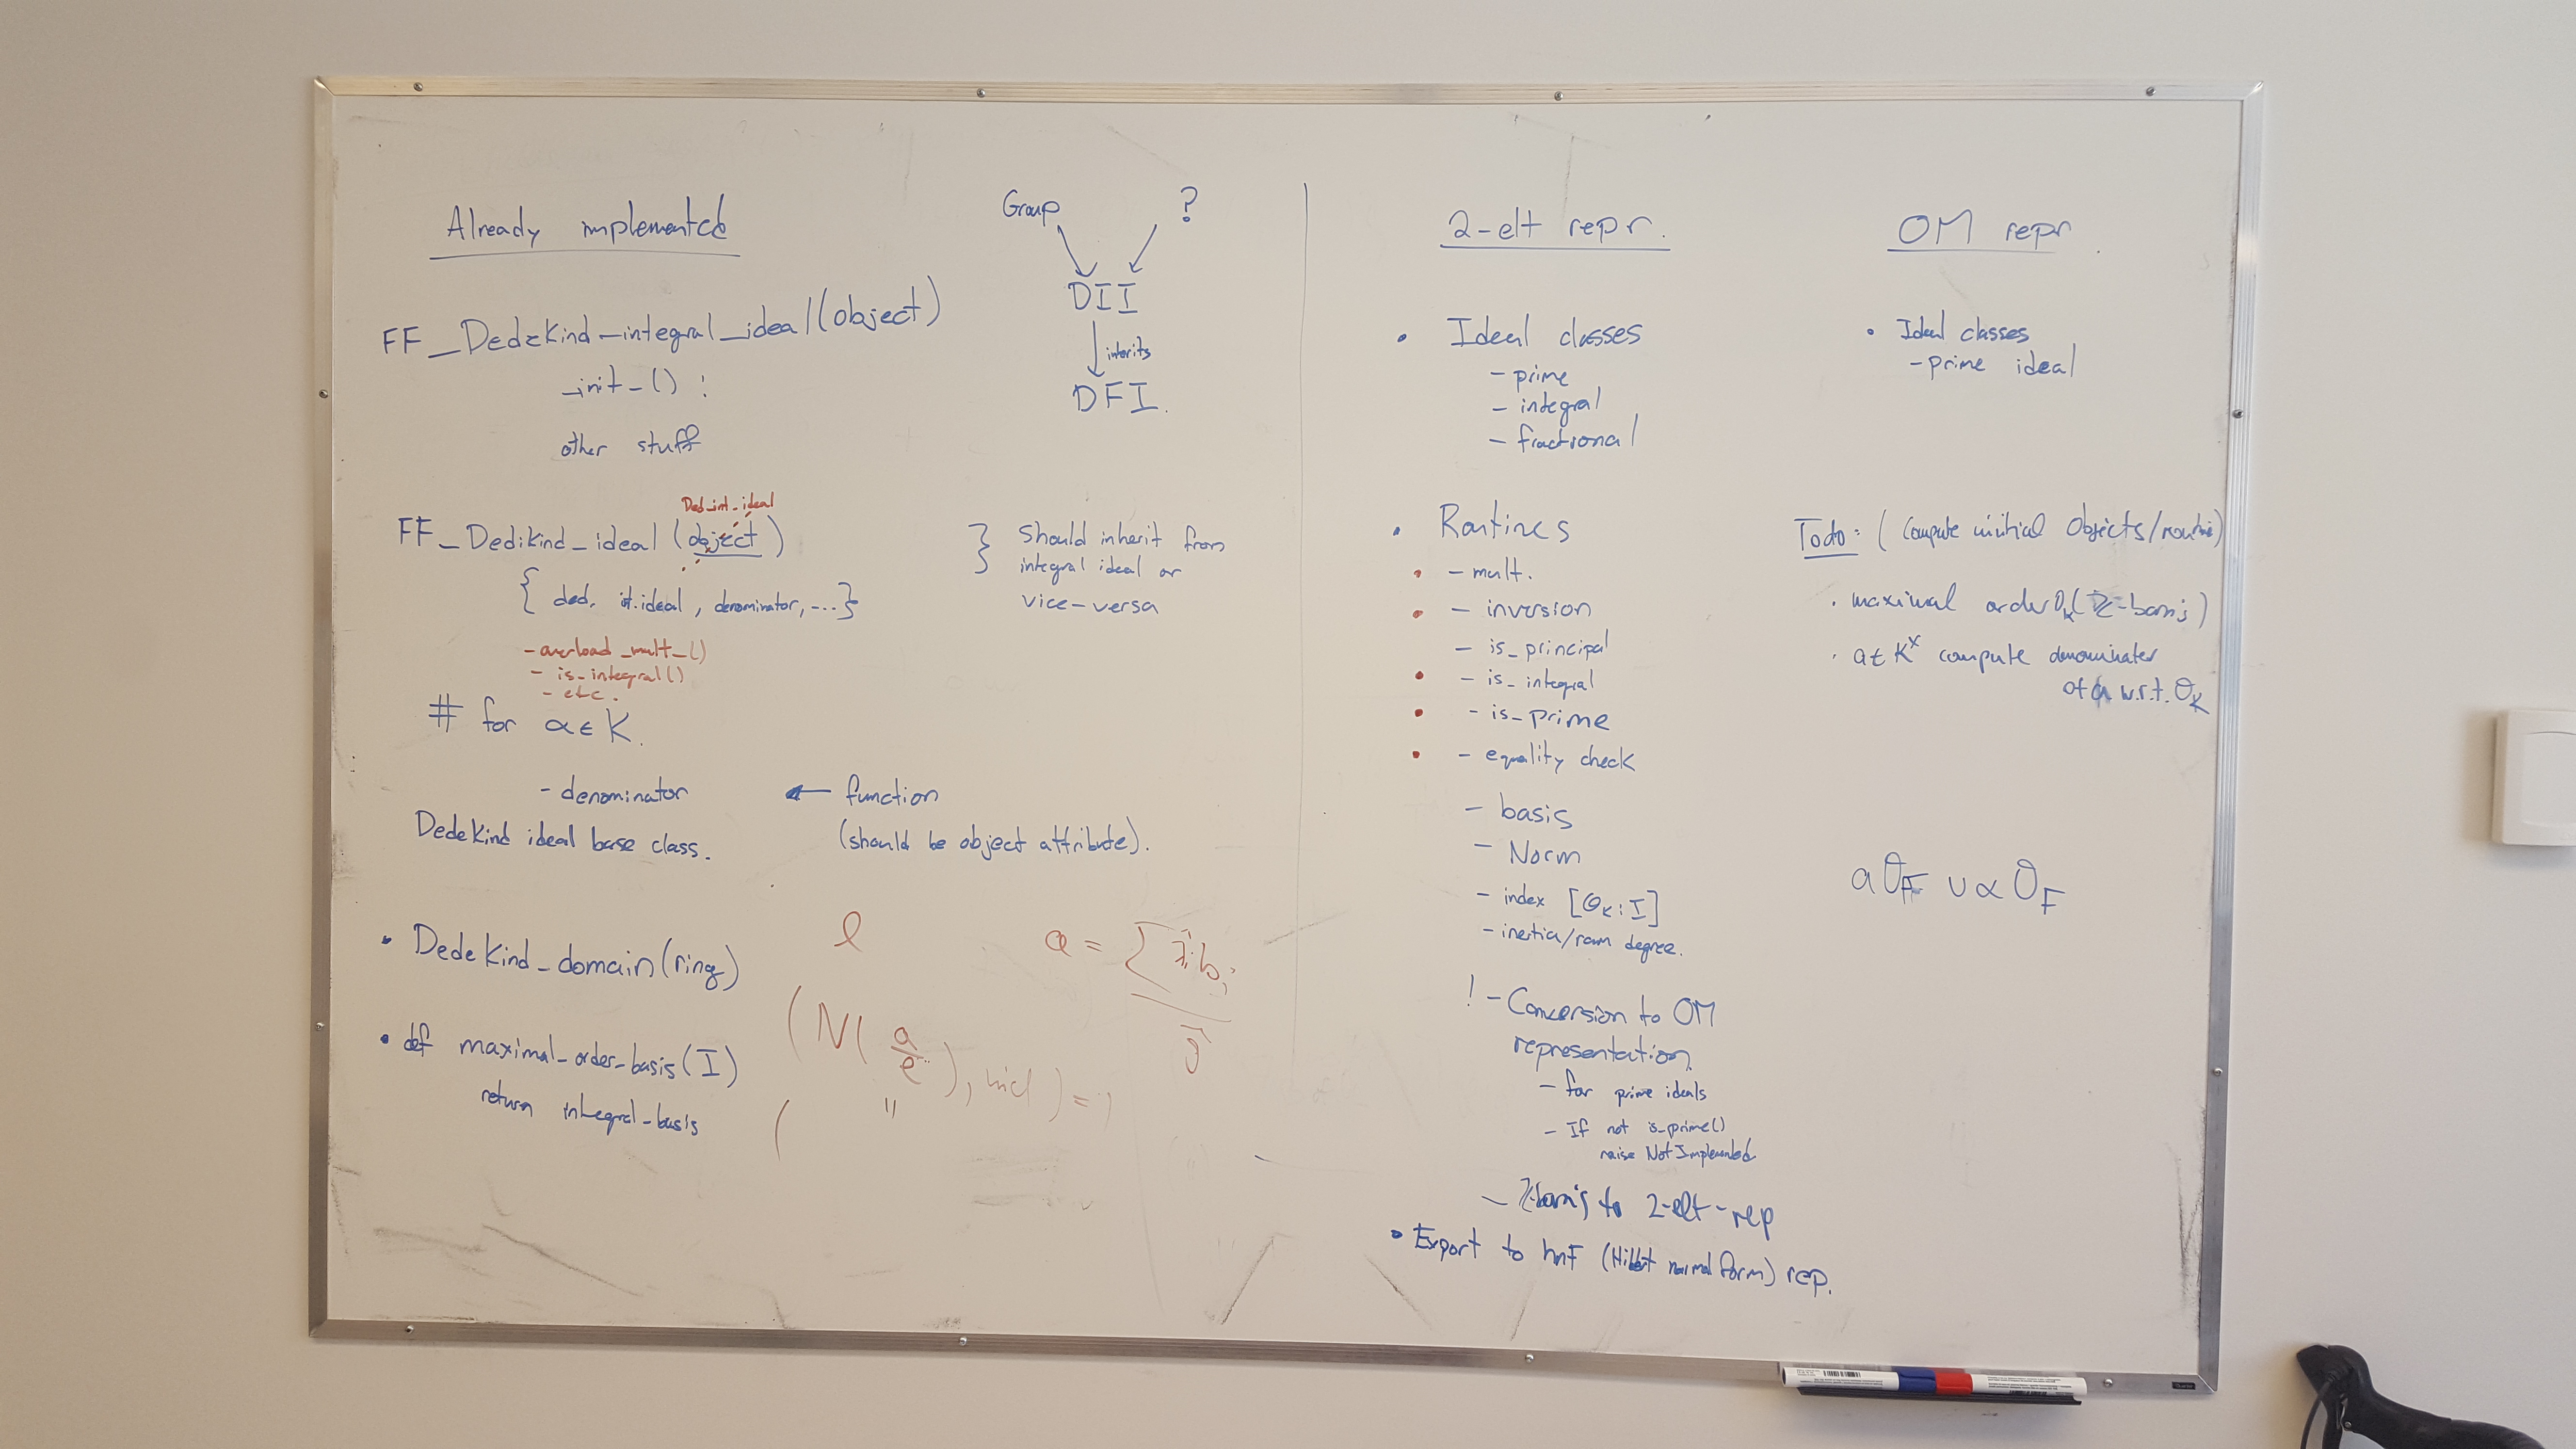 Already implemented
FF_Dedekind_integral_ideal(object)
_init_() :
other stuff
Group ?
DII
inherits
DFI.
Ded_int_ideal
FF_Dedikind_ideal (object)
{ ded. it.ideal, denominator, ...}
- overload _mult_()
- is_integral()
- etc.
} should inherit from
integral ideal or
vice-versa
# for α ∈ K.
- denominator ← function
(should be object attribute).
Dedekind ideal base class.
• Dedekind_domain(ring)
• def maximal_order_basis(I)
return integral_basis
l
a = ∑ λi bi
(N( a/e ), ) = 1
( "
2-elt repr.
• Ideal classes
- prime
- integral
- fractional
• Routines
• - mult.
• - inversion
- is_principal
• - is_integral
• - is_prime
• - equality check
- basis
- Norm
- index [O_K : I]
- inertia/ram degree.
! - Conversion to OM
representation
- for prime ideals
- If not is_prime()
raise NotImplemented
- Z-basis to 2-elt-rep
• Export to hnf (Hilbert normal form) rep.
OM repr.
• Ideal classes
- prime ideal
Todo: ( Compute initial Objects/routine)
• maximal order O_K (Z-basis)
• a ∈ K^x compute denominator
of a w.r.t. O_K
a O_F ∪ α O_F